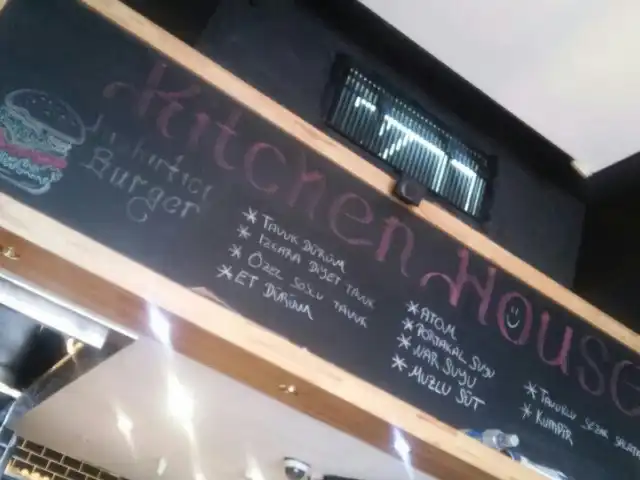 Kitchen House
Burger
* TAVUK DÜRÜM
* IZGARA DİYET TAVUK
* ÖZEL SOSLU TAVUK
* ET DÜRÜM
* ATOM
* PORTAKAL SUYU
* NAR SUYU
* MUZLU SÜT
* TAVUKLU SEZAR SALATA
* KUMPİR